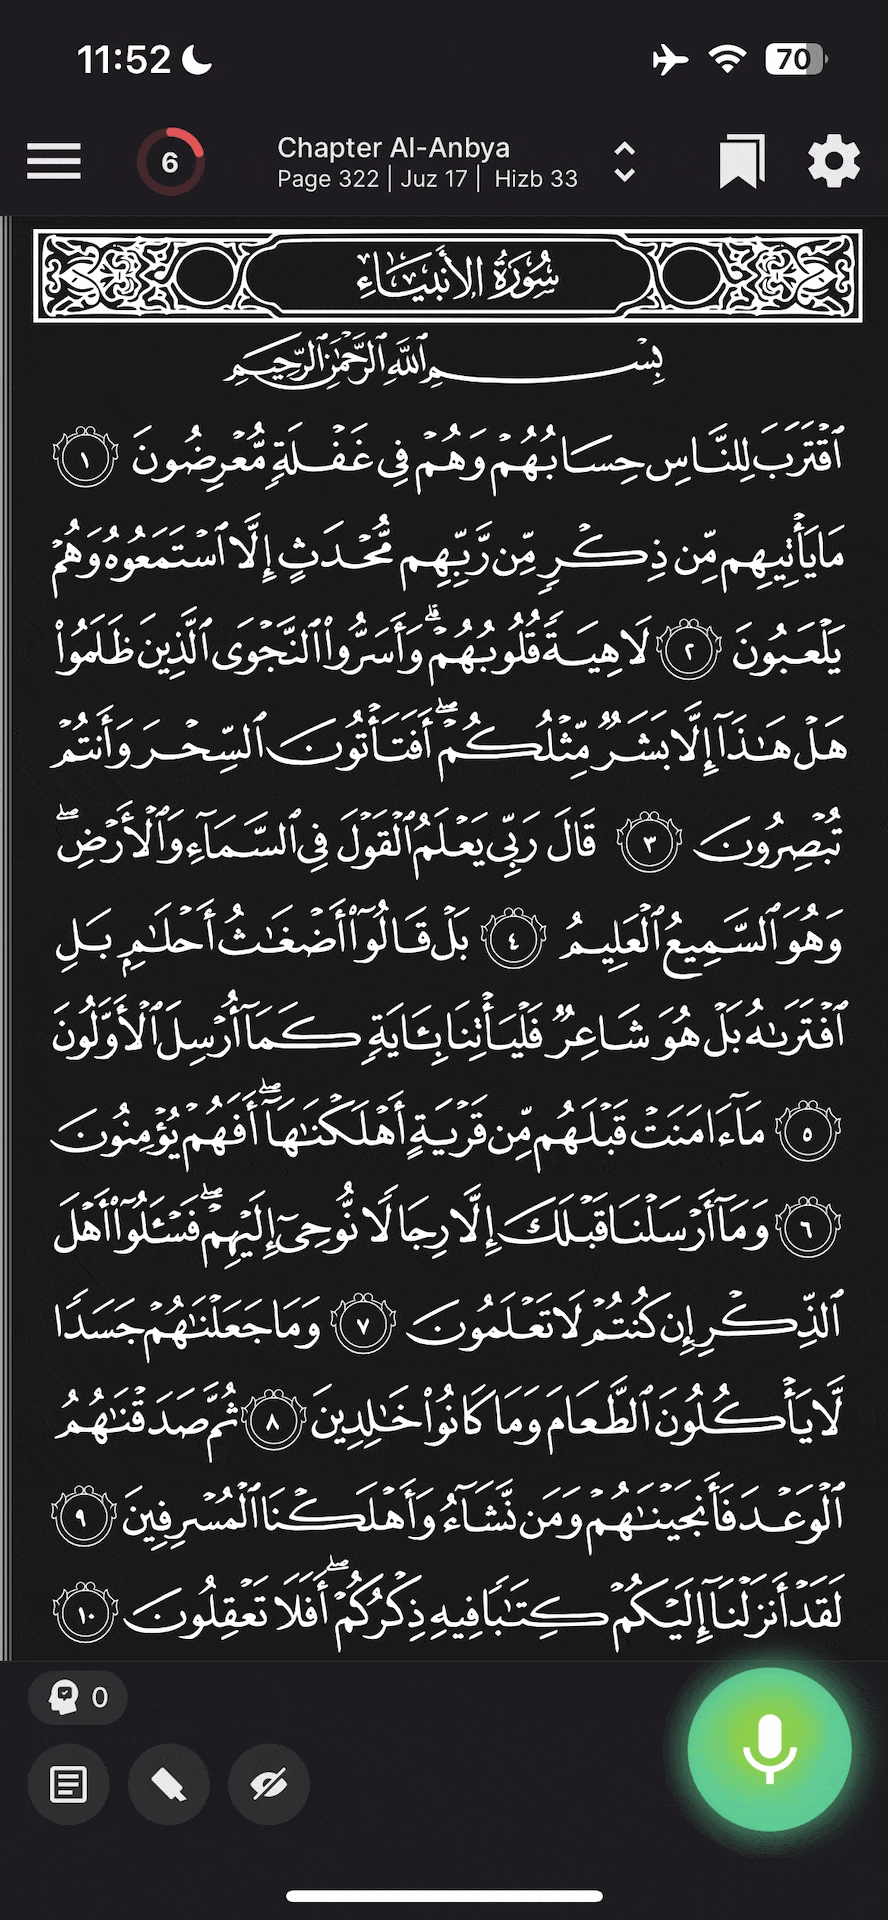 11:52
70
6
Chapter Al-Anbya
Page 322 | Juz 17 | Hizb 33
سُورَةُ الأَنبِيَاءِ
بِسْمِ ٱللَّهِ ٱلرَّحْمَٰنِ ٱلرَّحِيمِ
ٱقْتَرَبَ لِلنَّاسِ حِسَابُهُمْ وَهُمْ فِى غَفْلَةٍ مُّعْرِضُونَ ١
مَا يَأْتِيهِم مِّن ذِكْرٍ مِّن رَّبِّهِم مُّحْدَثٍ إِلَّا ٱسْتَمَعُوهُ وَهُمْ
يَلْعَبُونَ ٢ لَاهِيَةً قُلُوبُهُمْ ۗ وَأَسَرُّوا۟ ٱلنَّجْوَى ٱلَّذِينَ ظَلَمُوا۟
هَلْ هَٰذَآ إِلَّا بَشَرٌ مِّثْلُكُمْ ۖ أَفَتَأْتُونَ ٱلسِّحْرَ وَأَنتُمْ
تُبْصِرُونَ ٣ قَالَ رَبِّى يَعْلَمُ ٱلْقَوْلَ فِى ٱلسَّمَآءِ وَٱلْأَرْضِ ۖ
وَهُوَ ٱلسَّمِيعُ ٱلْعَلِيمُ ٤ بَلْ قَالُوٓا۟ أَضْغَٰثُ أَحْلَٰمٍۭ بَلِ
ٱفْتَرَىٰهُ بَلْ هُوَ شَاعِرٌ فَلْيَأْتِنَا بِـَٔايَةٍ كَمَآ أُرْسِلَ ٱلْأَوَّلُونَ
٥ مَآ ءَامَنَتْ قَبْلَهُم مِّن قَرْيَةٍ أَهْلَكْنَٰهَآ ۖ أَفَهُمْ يُؤْمِنُونَ
٦ وَمَآ أَرْسَلْنَا قَبْلَكَ إِلَّا رِجَالًا نُّوحِىٓ إِلَيْهِمْ ۖ فَسْـَٔلُوٓا۟ أَهْلَ
ٱلذِّكْرِ إِن كُنتُمْ لَا تَعْلَمُونَ ٧ وَمَا جَعَلْنَٰهُمْ جَسَدًا
لَّا يَأْكُلُونَ ٱلطَّعَامَ وَمَا كَانُوا۟ خَٰلِدِينَ ٨ ثُمَّ صَدَقْنَٰهُمُ
ٱلْوَعْدَ فَأَنجَيْنَٰهُمْ وَمَن نَّشَآءُ وَأَهْلَكْنَا ٱلْمُسْرِفِينَ ٩
لَقَدْ أَنزَلْنَآ إِلَيْكُمْ كِتَٰبًا فِيهِ ذِكْرُكُمْ ۖ أَفَلَا تَعْقِلُونَ ١٠
0